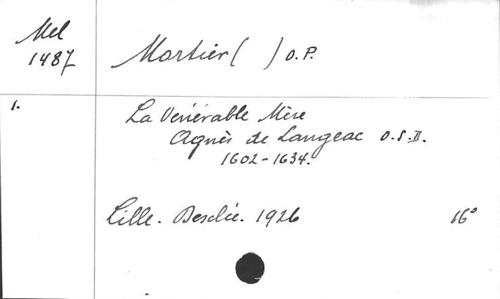 Mel
1487
Mortier ( ) O.P.
1.
La Vénérable Mère
Agnès de Langeac O.S.D.
1602-1634.
Lille. Desclée. 1926
16°